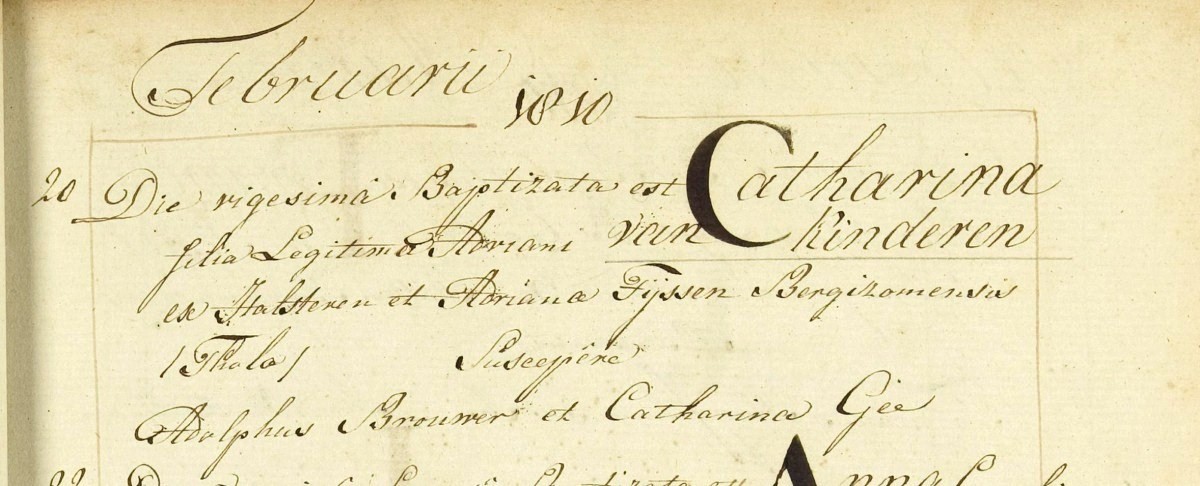 Februarii 1810
20 Die vigesimâ Baptizata est Catharina
filia Legitima Adriani van Kinderen
ex Halsteren et Adriana Tijssen Bergizomensis
/Thola/ Suscepêre
Adolphus Brouwer et Catharina Gée
22